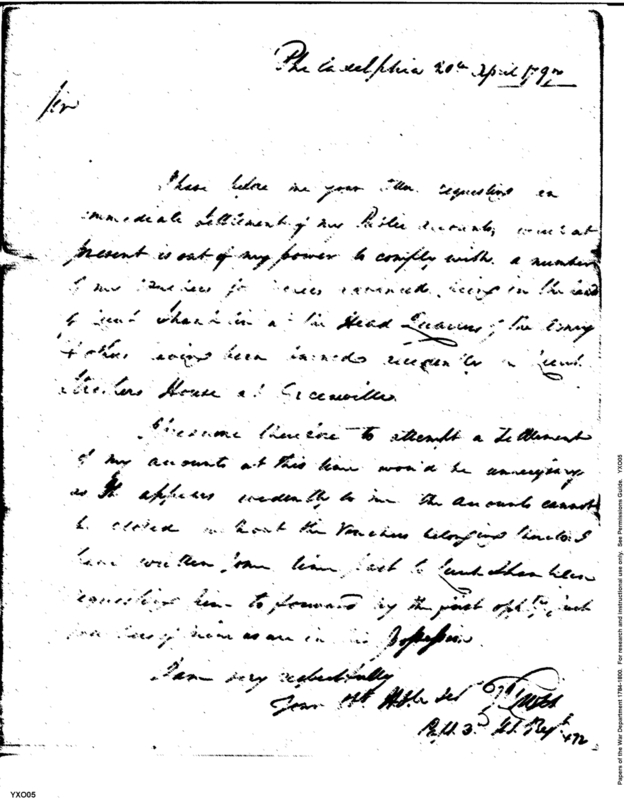 Philadelphia 20th April 179
Sir
I have before me your requesting an
immediate Settlement of my Public Accounts, at
present is out of my power to comply with. a number
of my Vouchers for being in the
of Lieut at the Head Quarters of the Army
& others having been burned in Lieut
House at Greeneville
I presume therefore to attempt a Settlement
of my accounts at this time would be unnecessary
as It appears evidently to me the accounts cannot
be closed without the Vouchers belonging thereto. I
have written some time past to Lieut
requesting him to forward by the first oppty such
of mine as are in his Possession.
I am very respectfully
Your Ob. Hble Sert
Capt. 3d Regt
YXO05
Papers of the War Department 1784-1800. For research and instructional use only. See Permissions Guide. YXO05